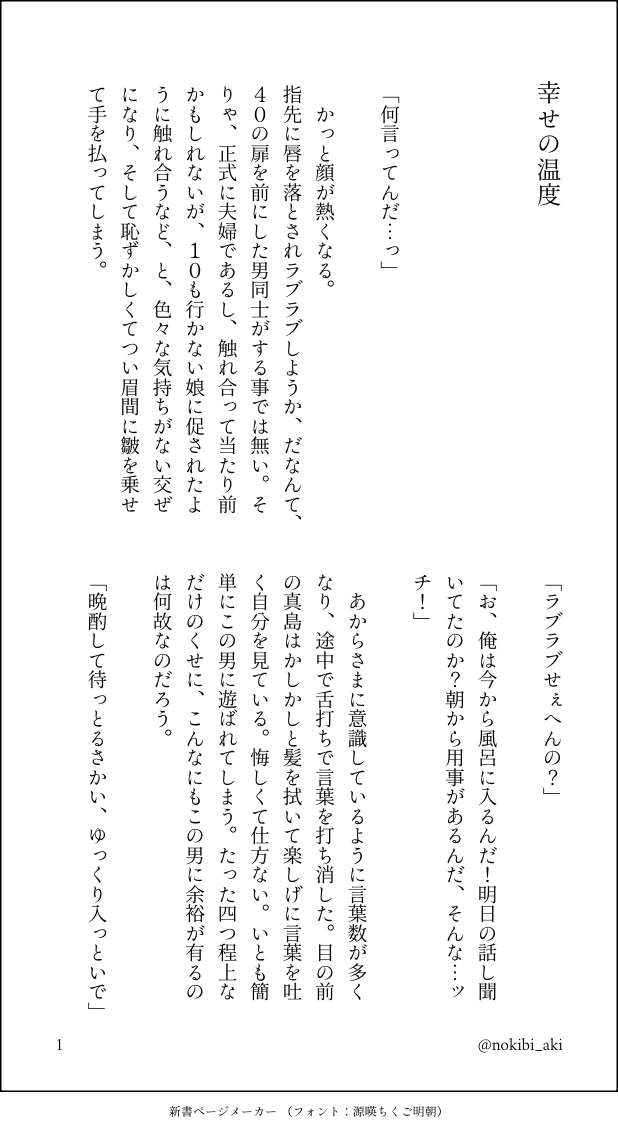 幸せの温度
「何言ってんだ…っ」
かっと顔が熱くなる。
指先に唇を落とされラブラブしようか、だなんて、
４０の扉を前にした男同士がする事では無い。そ
りゃ、正式に夫婦であるし、触れ合って当たり前
かもしれないが、１０も行かない娘に促されたよ
うに触れ合うなど、と、色々な気持ちがない交ぜ
になり、そして恥ずかしくてつい眉間に皺を乗せ
て手を払ってしまう。
「ラブラブせぇへんの？」
「お、俺は今から風呂に入るんだ！明日の話し聞
いてたのか？朝から用事があるんだ、そんな…ッ
チ！」
あからさまに意識しているように言葉数が多く
なり、途中で舌打ちで言葉を打ち消した。目の前
の真島はかしかしと髪を拭いて楽しげに言葉を吐
く自分を見ている。悔しくて仕方ない。いとも簡
単にこの男に遊ばれてしまう。たった四つ程上な
だけのくせに、こんなにもこの男に余裕が有るの
は何故なのだろう。
「晩酌して待っとるさかい、ゆっくり入っといで」
1
@nokibi_aki
新書ページメーカー （フォント：源暎ちくご明朝）